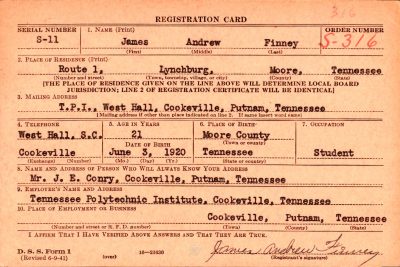 REGISTRATION CARD
SERIAL NUMBER 1. NAME (Print) ORDER NUMBER
S-11 James Andrew Finney S-316
(First) (Middle) (Last)
2. PLACE OF RESIDENCE (Print)
Route 1, Lynchburg, Moore, Tennessee
(Number and street) (Town, township, village, or city) (County) (State)
[THE PLACE OF RESIDENCE GIVEN ON THE LINE ABOVE WILL DETERMINE LOCAL BOARD
JURISDICTION; LINE 2 OF REGISTRATION CERTIFICATE WILL BE IDENTICAL]
3. MAILING ADDRESS
T.P.I., West Hall, Cookeville, Putnam, Tennessee
[Mailing address if other than place indicated on line 2. If same insert word same]
4. TELEPHONE 5. AGE IN YEARS 6. PLACE OF BIRTH 7. OCCUPATION
West Hall, S.C. 21 Moore County
DATE OF BIRTH (Town or county)
Cookeville June 3, 1920 Tennessee Student
(Exchange) (Number) (Mo.) (Day) (Yr.) (State or country)
8. NAME AND ADDRESS OF PERSON WHO WILL ALWAYS KNOW YOUR ADDRESS
Mr. J. E. Conry, Cookeville, Putnam, Tennessee
9. EMPLOYER'S NAME AND ADDRESS
Tennessee Polytechnic Institute, Cookeville, Tennessee
10. PLACE OF EMPLOYMENT OR BUSINESS
Cookeville, Putnam, Tennessee
(Number and street or R. F. D. number) (Town) (County) (State)
I AFFIRM THAT I HAVE VERIFIED ABOVE ANSWERS AND THAT THEY ARE TRUE.
D. S. S. Form 1 James Andrew Finney
(Revised 6-9-41) (over) (Registrant's signature)